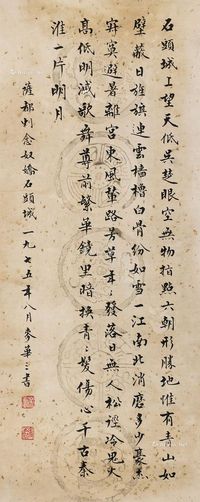 石頭城上望天低吳楚眼空無物指點六朝形勝地惟有青山如
壁蔽日旌旗連雲檣櫓白骨紛如雪一江南北消磨多少豪傑
寂寞避暑離宮東風輦路芳草年〻發落日無人松徑冷鬼火
高低明滅歌舞尊前繁華鏡里暗換青〻髮傷心千古秦
淮一片明月
薩都剌念奴嬌石頭城 一九七五年八月麥華三書